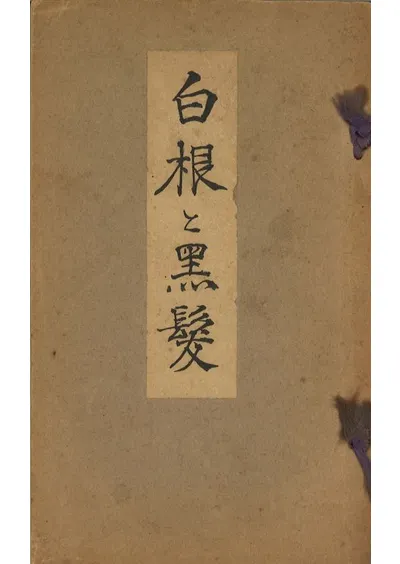 白根と黑髮